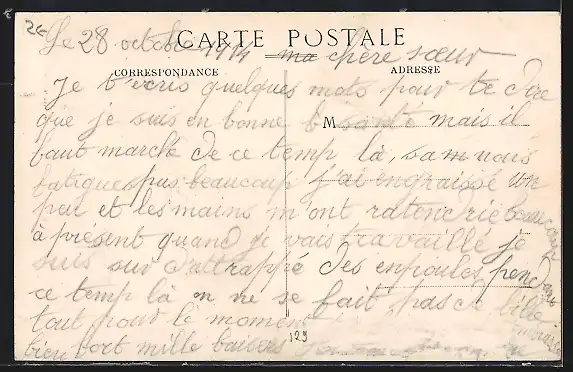 Le 28 octobre 1914 ma chère sœur
CARTE POSTALE
CORRESPONDANCE
ADRESSE
Je t'écris quelques mots pour te dire
M
que je suis en bonne santé mais il
faut marché de ce temp là, sam nous
fatigues pas beaucoup j'ai engraissé un
peu et les mains m'ont ratendrie beaucoup
à présent quand je vais travaillé je
suis sur d'attrappé des enpoules pendant
ce temp là on ne se fait pas de bile
tout pour le moment embrasse
bien fort mille baisers
129